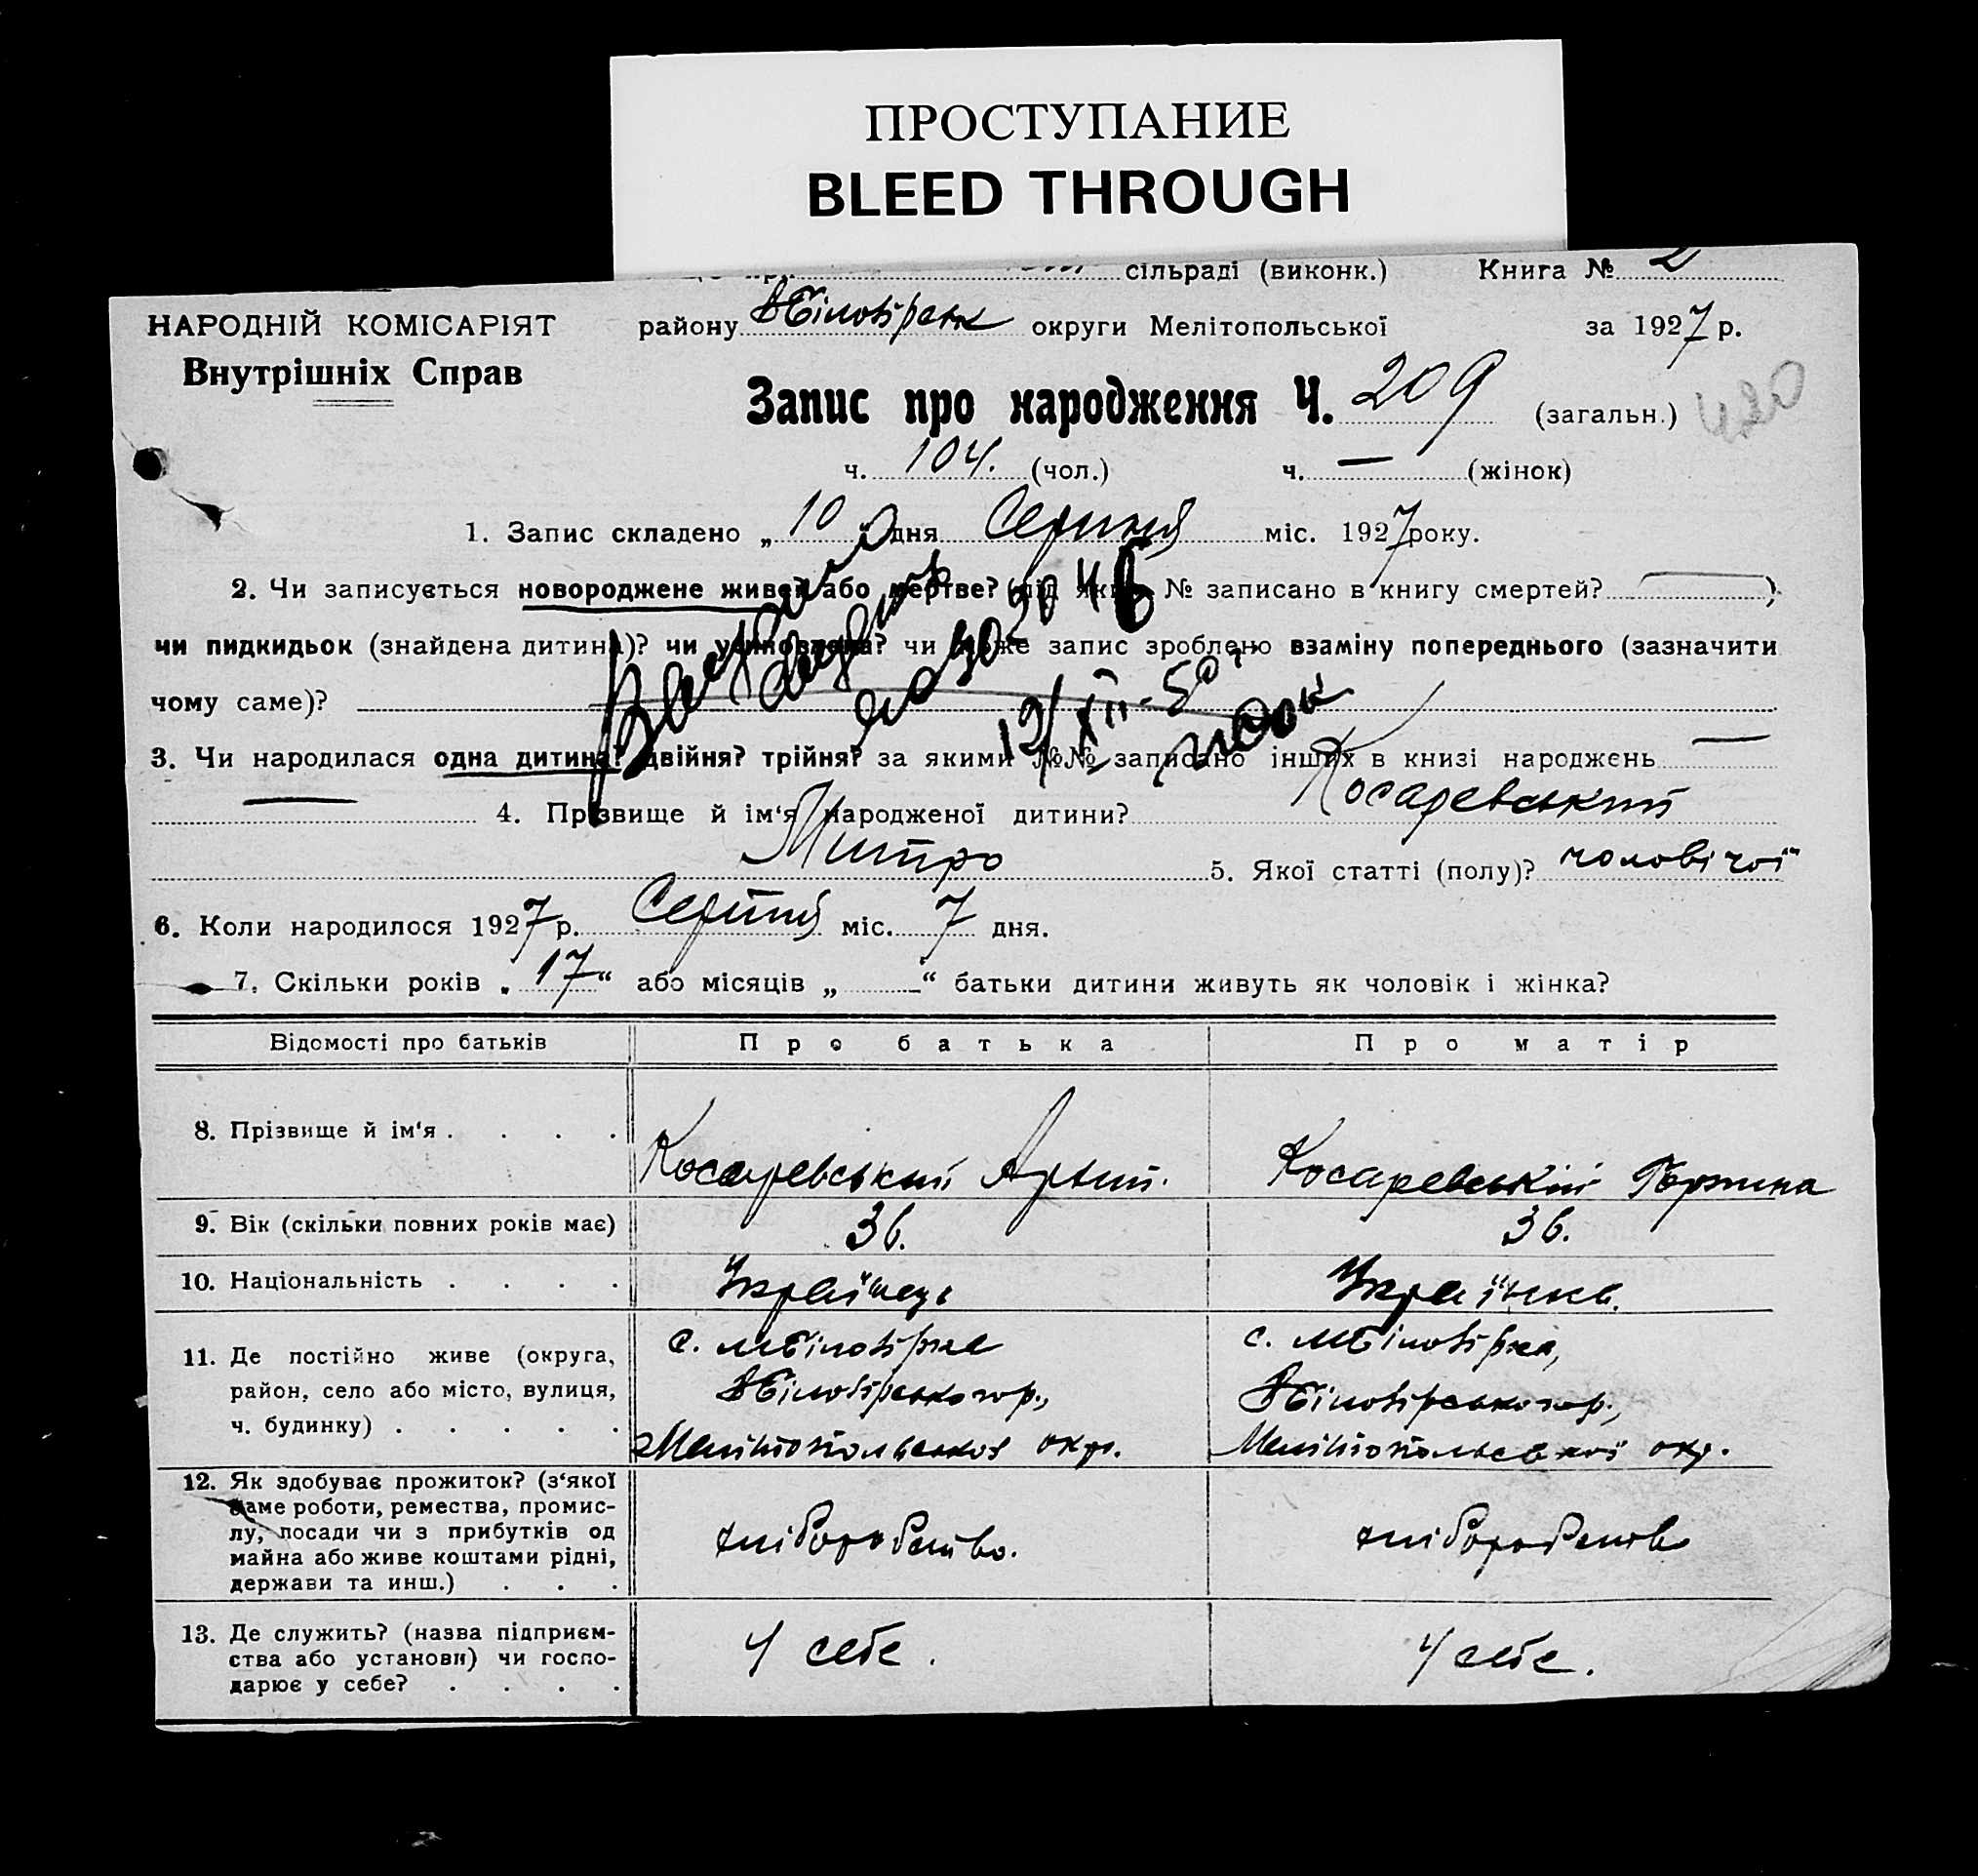 ПРОСТУПАНИЕ
BLEED THROUGH
сільраді (виконк.) Книга № 2
НАРОДНІЙ КОМІСАРІЯТ
Внутрішніх Справ
району округи Мелітопольської за 1927 р.
Запис про народження Ч. 209 (загальн.)
420
ч. 104. (чол.) ч. — (жінок)
1. Запис складено „ 10 " дня Серпня міс. 1927 року.
2. Чи записується новороджене живе? або мертве? (під яким № записано в книгу смертей? )
чи пидкидьок (знайдена дитина)? чи усиновлена? чи може запис зроблено взаміну попереднього (зазначити
чому саме)?
3. Чи народилася одна дитина? двійня? трійня? за якими №№ записано інших в книзі народжень —
— 4. Прізвище й ім'я народженої дитини? Косаревський
Митро 5. Якої статті (полу)? чоловічої
6. Коли народилося 1927 р. Серпня міс. 7 дня.
7. Скільки років „ 17 “ або місяців „ — “ батьки дитини живуть як чоловік і жінка?
Відомості про батьків Про батька Про матір
8. Прізвище й ім'я . . . . Косаревський Косаревській
9. Вік (скільки повних років має) 36. 36.
10. Національність . . . . Українець Українка.
11. Де постійно живе (округа,
район, село або місто, вулиця,
ч. будинку) . . . . .
с. МБілозірка
ВБілозірського р.,
Мелітопольської окр.
с. МБілозірка,
ВБілозірського р.,
Мелітопольської окр.
12. Як здобуває прожиток? (з'якої
саме роботи, ремества, промис-
лу, посади чи з прибутків од
майна або живе коштами рідні,
держави та инш.) . . .
хліборобство.
хліборобств
13. Де служить? (назва підприєм-
ства або установи) чи госпо-
дарює у себе? . . . .
У себе.
У себе.